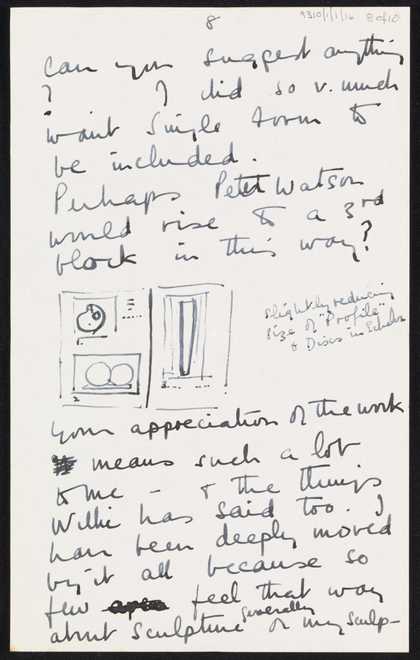 8
9310/1/1/16 8 of 10
can you suggest anything
? I did so v. much
want Single form to
be included.
Perhaps Peter Watson
would rise to a 3rd
block in this way?
slightly reducing
size of "Profile"
& Discs in Echelon
2.
3.
your appreciation of the work
means such a lot
to me – & the things
Willie has said too. I
have been deeply moved
by it all because so
few feel that way
about sculpture generally or my sculp-